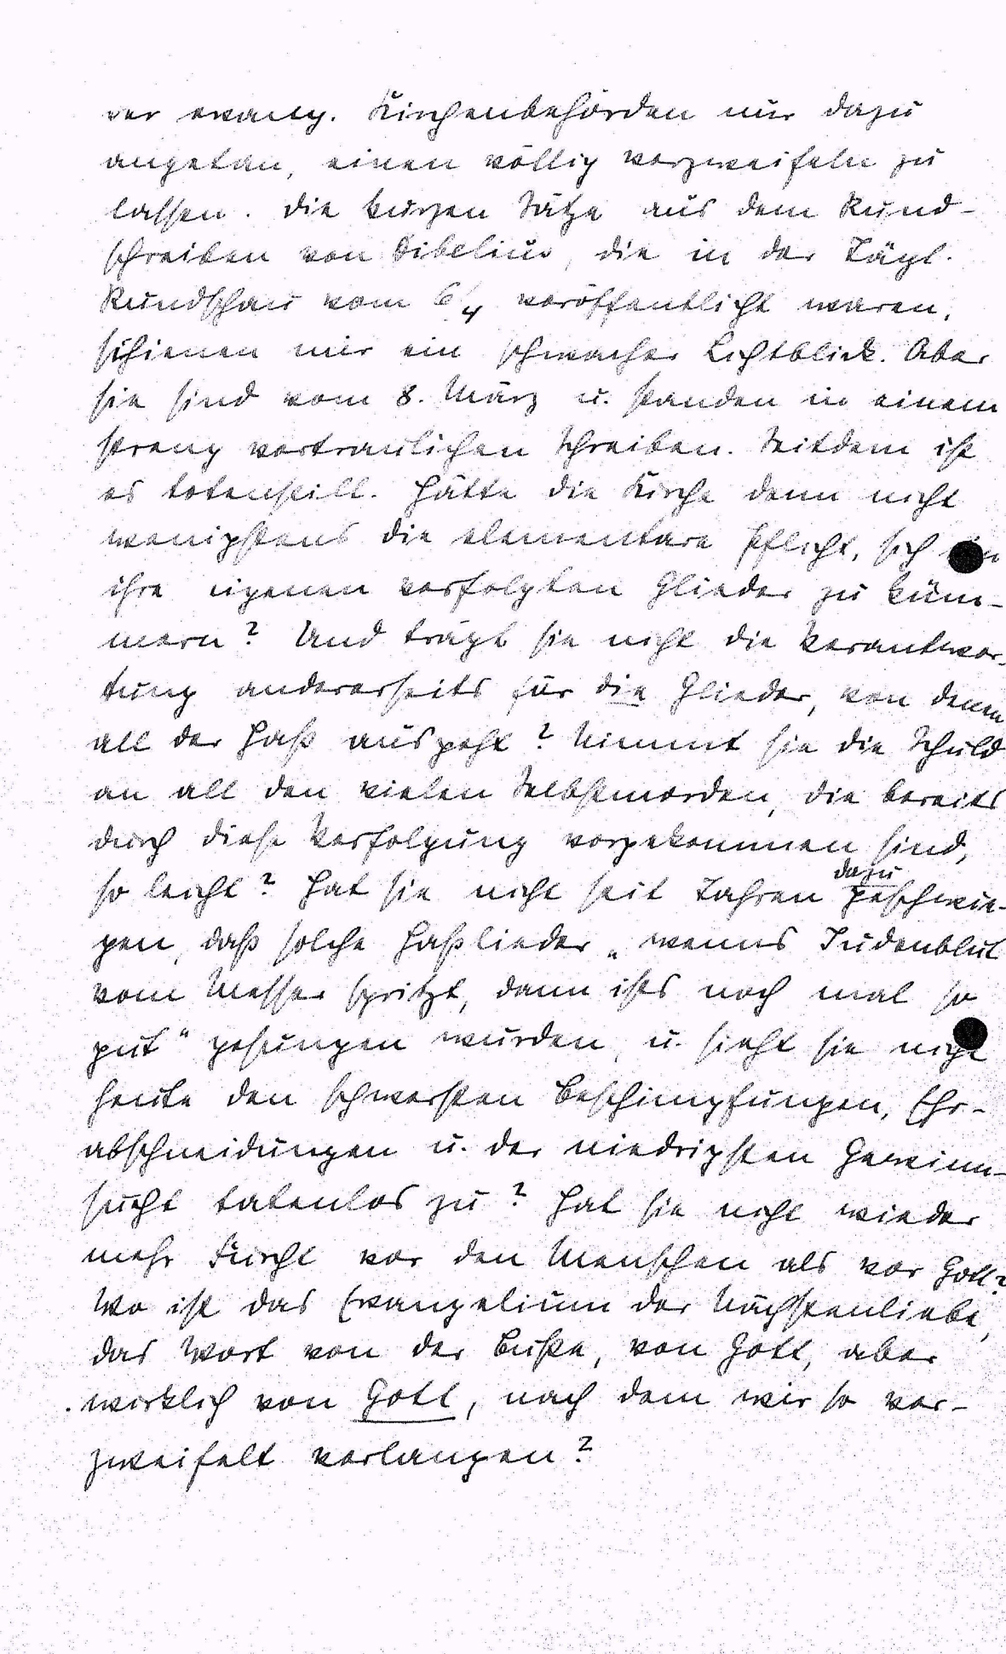 der evang. Kirchenbehörden nur dazu
angetan, einen völlig verzweifeln zu
lassen. Die kurzen Sätze aus dem Rund-
schreiben von Dibelius, die in der Tägl.
Rundschau vom 6/4 veröffentlicht waren,
schienen mir ein schwacher Lichtblick. Aber
sie sind vom 8. März u. standen in einem
streng vertraulichen Schreiben. Seitdem ist
es totenstill. Hätte die Kirche denn nicht
wenigstens die elementare Pflicht, sich um
ihre eigenen verfolgten Glieder zu küm-
mern? Und trägt sie nicht die Verantwor-
tung andererseits für die Glieder, von denen
all der Haß ausgeht? Nimmt sie die Schuld
an all den vielen Selbstmorden, die bereits
durch diese Verfolgung vorgekommen sind,
so leicht? Hat sie nicht seit Jahren dazu geschwie-
gen, daß solche Haßlieder „wenns Judenblut
vom Messer spritzt, dann ists noch mal so
gut" gesungen wurden, u. sieht sie nicht
heute den schwersten Beschimpfungen, Ehr-
abschneidungen u. der niedrigsten Gewinn-
sucht tatenlos zu? Hat sie nicht wieder
mehr Furcht vor den Menschen als vor Gott?
Wo ist das Evangelium der Nächstenliebe,
das Wort von der Buße, von Gott, aber
wirklich von Gott, nach dem wir so ver-
zweifelt verlangen?